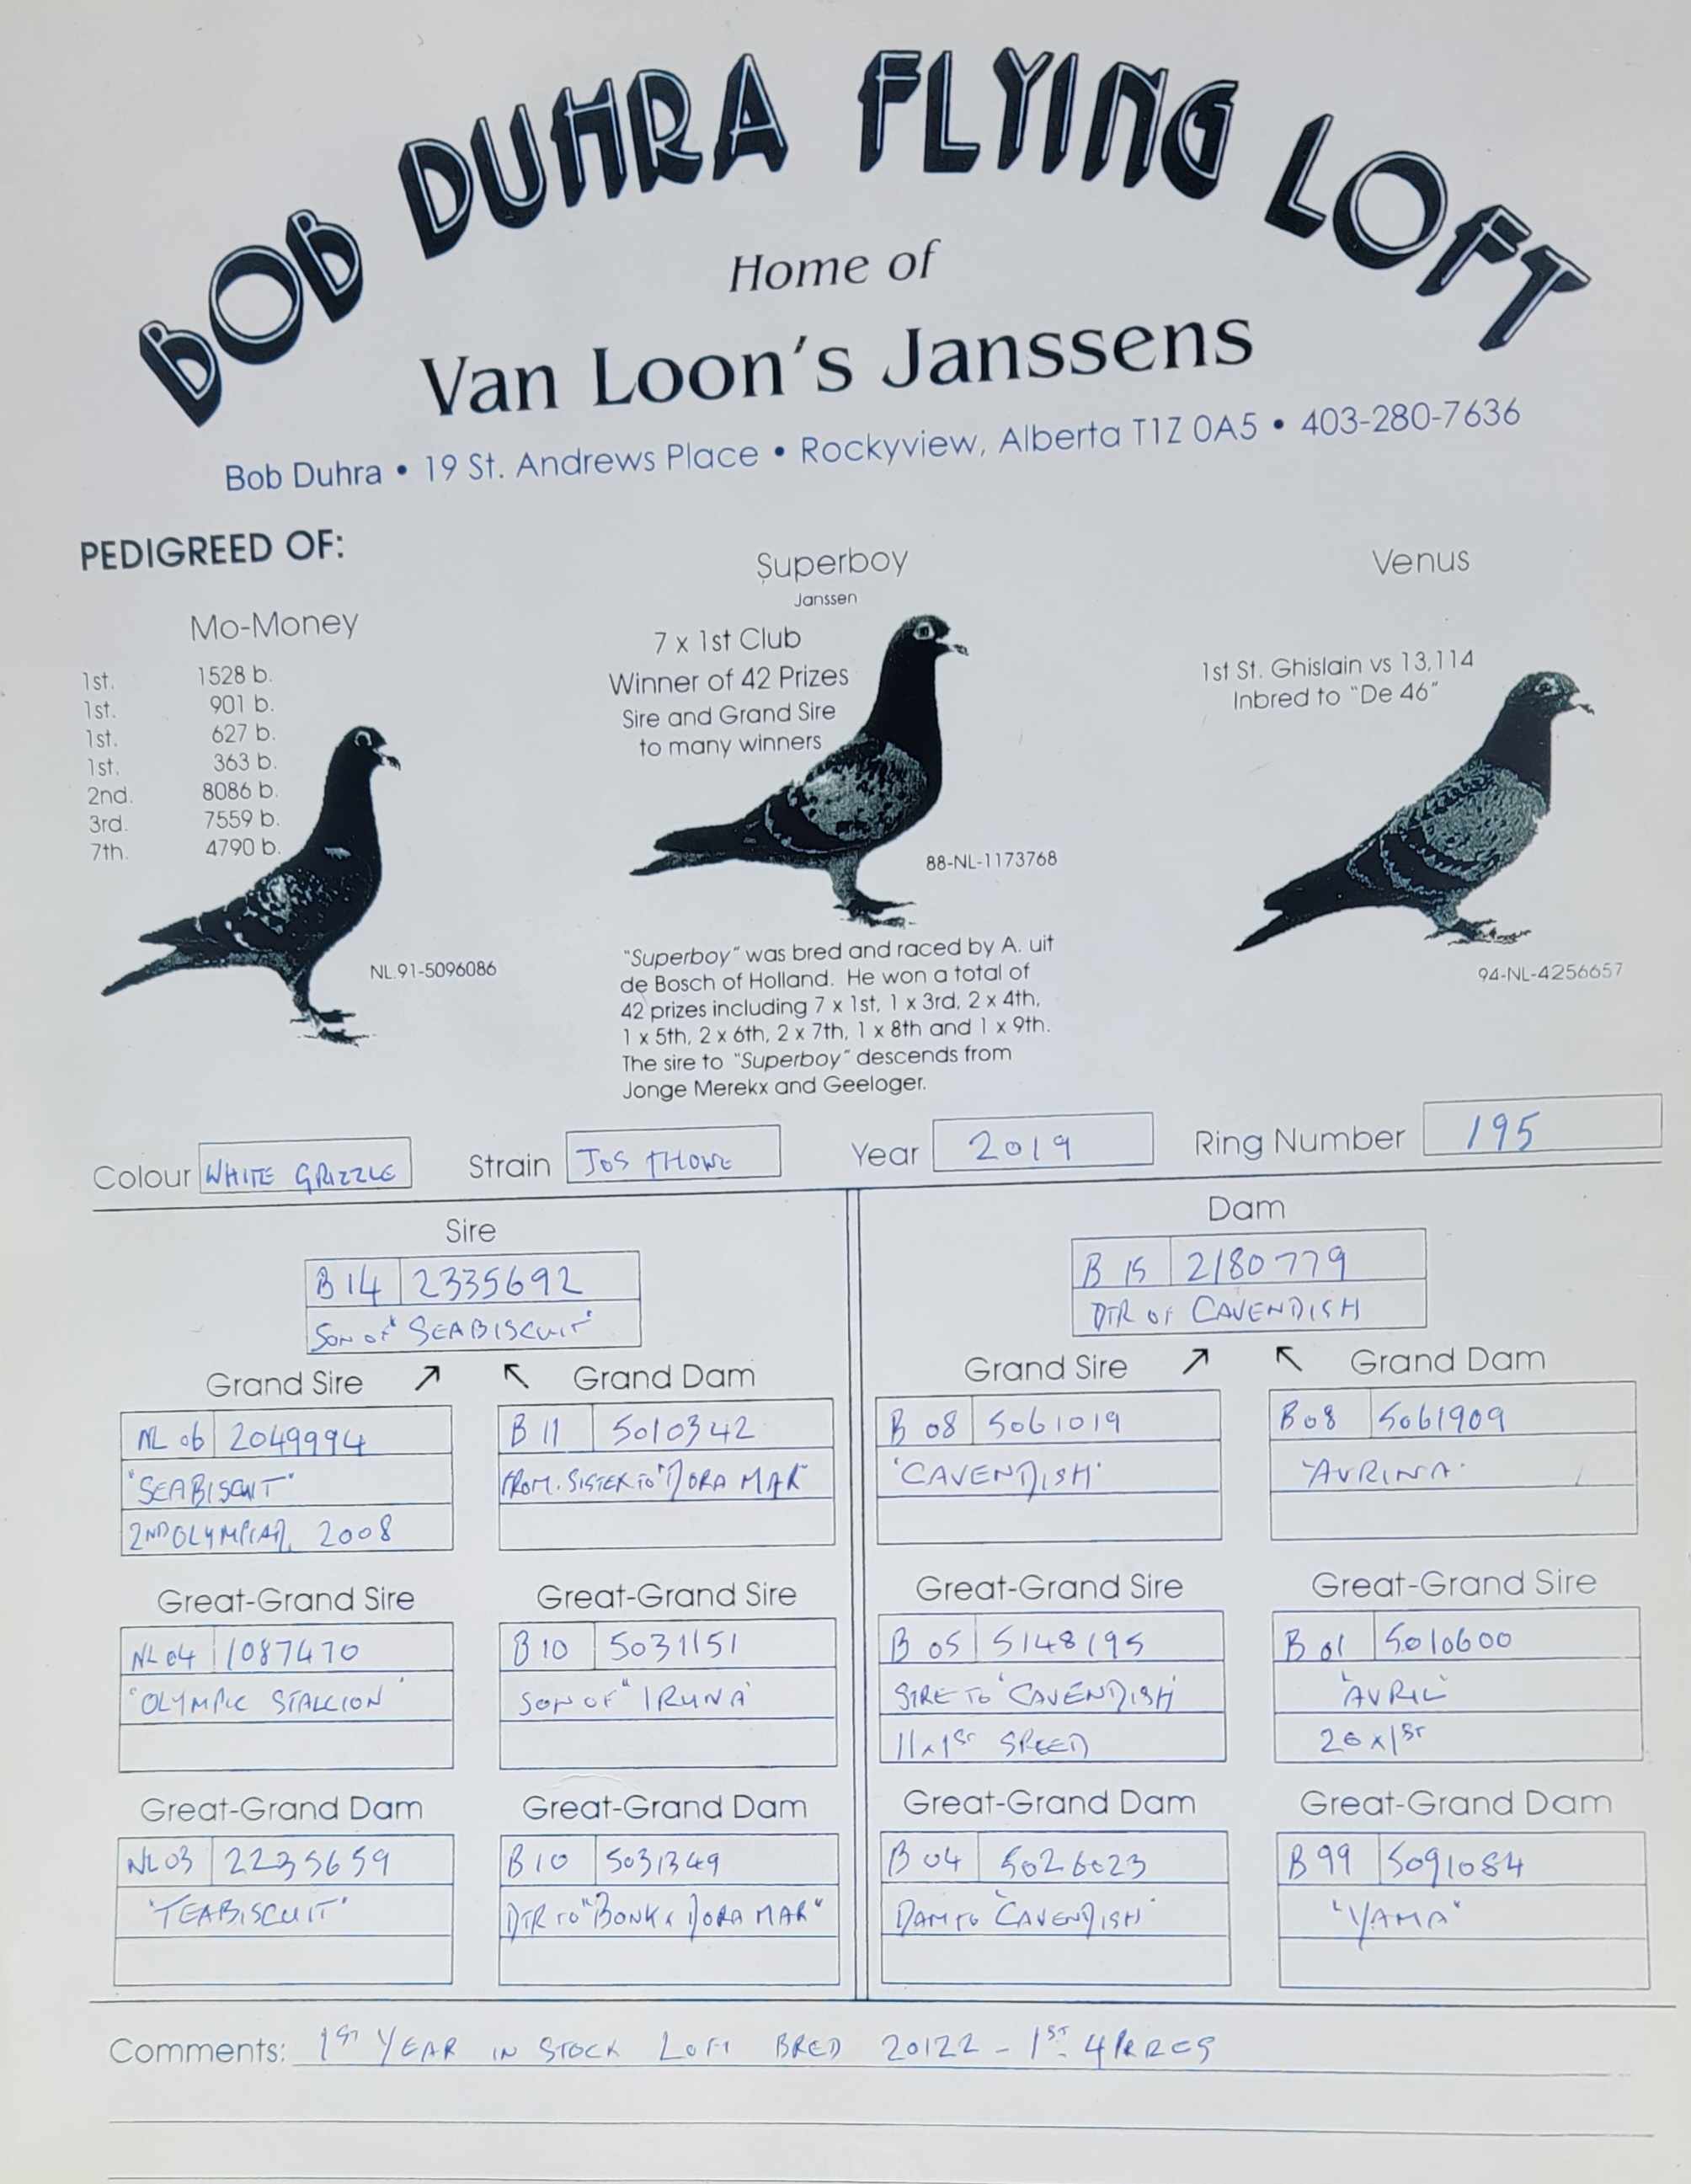 BOB DUHRA FLYING LOFT
Home of
Van Loon's Janssens
Bob Duhra • 19 St. Andrews Place • Rockyview, Alberta T1Z 0A5 • 403-280-7636
PEDIGREED OF:
Mo-Money
1st. 1528 b.
1st. 901 b.
1st. 627 b.
1st. 363 b.
2nd. 8086 b.
3rd. 7559 b.
7th. 4790 b.
NL.91-5096086
Superboy
Janssen
7 x 1st Club
Winner of 42 Prizes
Sire and Grand Sire
to many winners
88-NL-1173768
"Superboy" was bred and raced by A. uit
de Bosch of Holland. He won a total of
42 prizes including 7 x 1st, 1 x 3rd, 2 x 4th,
1 x 5th, 2 x 6th, 2 x 7th, 1 x 8th and 1 x 9th.
The sire to "Superboy" descends from
Jonge Merekx and Geeloger.
Venus
1st St. Ghislain vs 13,114
Inbred to "De 46"
94-NL-4256657
Colour WHITE GRIZZLE Strain JOS THONE Year 2019 Ring Number 195
Sire
B 14 2335692
SON OF "SEABISCUIT"
Dam
B 15 2180779
DTR OF CAVENDISH
Grand Sire ↗ ↖ Grand Dam Grand Sire ↗ ↖ Grand Dam
NL 06 2049994 B 11 5010342 B 08 5061019 B 08 5061909
"SEABISCUIT" FROM. SISTER TO "DORA MAR" 'CAVENDISH' 'AVRINA'
2ND OLYMPIAD 2008
Great-Grand Sire Great-Grand Sire Great-Grand Sire Great-Grand Sire
NL 04 1087470 B 10 5031151 B 05 5148195 B 01 5010600
'OLYMPIC STALLION' SON OF "IRUNA" SIRE TO 'CAVENDISH' 'AVRIL'
11 x 1ST SPEED 26 x 1ST
Great-Grand Dam Great-Grand Dam Great-Grand Dam Great-Grand Dam
NL 03 2235659 B 10 5031349 B 04 5026023 B 99 5091084
'TEABISCUIT' DTR TO "BONK x DORA MAR" DAM TO 'CAVENDISH' "YAMA"
Comments: 1ST YEAR IN STOCK LOFT BRED 20122 - 1ST 4